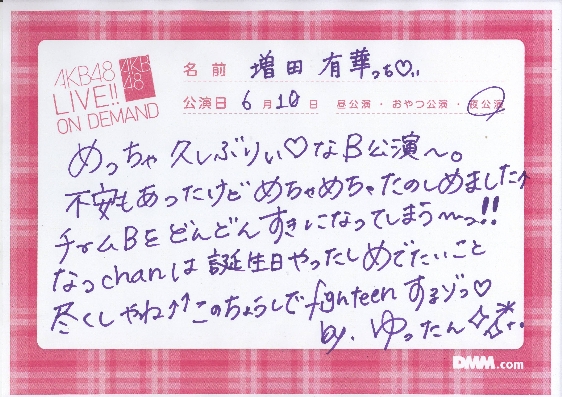 AKB48
LIVE!!
ON DEMAND
AKB
48
名前 増田 有華っち♡
公演日 6月10日 昼公演・おやつ公演・夜公演
めっちゃ久しぶりぃ♡なB公演〜。
不安もあったけどめちゃめちゃたのしめました↑
チームBをどんどんすきになってしまう〜っ!!
なっchanは誕生日やったしめでたいこと
尽くしやね↑↑このちょうしでfighteenするゾっ♡
by.ゆったん☆
DMM.com